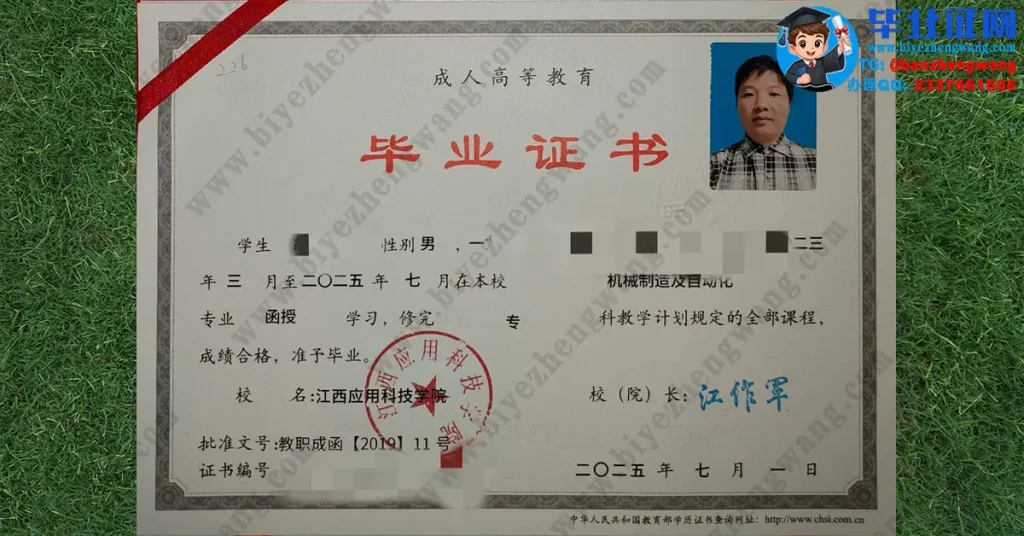 毕业证网
www.biyezhengwang.com
TG: @banzhengwang
办理QQ: 2337661866
226
成人高等教育
毕业证书
学生 性别 男 ，一
二三
年 三 月至二〇二五 年 七 月在本校 机械制造及自动化
专业 函授 学习，修完 专 科教学计划规定的全部课程，
成绩合格，准予毕业。
校 名：江西应用科技学院 校（院）长：江作军
江西应用科技学院
批准文号：教职成函【2019】11号
证书编号 二〇二五 年 七 月 一 日
中华人民共和国教育部学历证书查询网址：http://www.chsi.com.cn
www.biyezhengwang.com